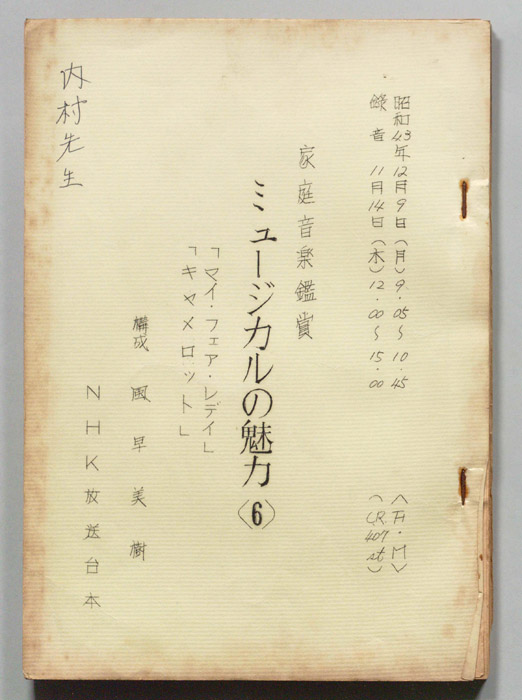 昭和43年12月9日(月)9.05〜10.45 〈F.M〉
録音 11月14日(木)12.00〜15.00 (CR.407st)
家庭音楽鑑賞
ミュージカルの魅力〈6〉
「マイ・フェア・レディ」
「キャメロット」
構成 風早美樹
NHK放送台本
内村先生